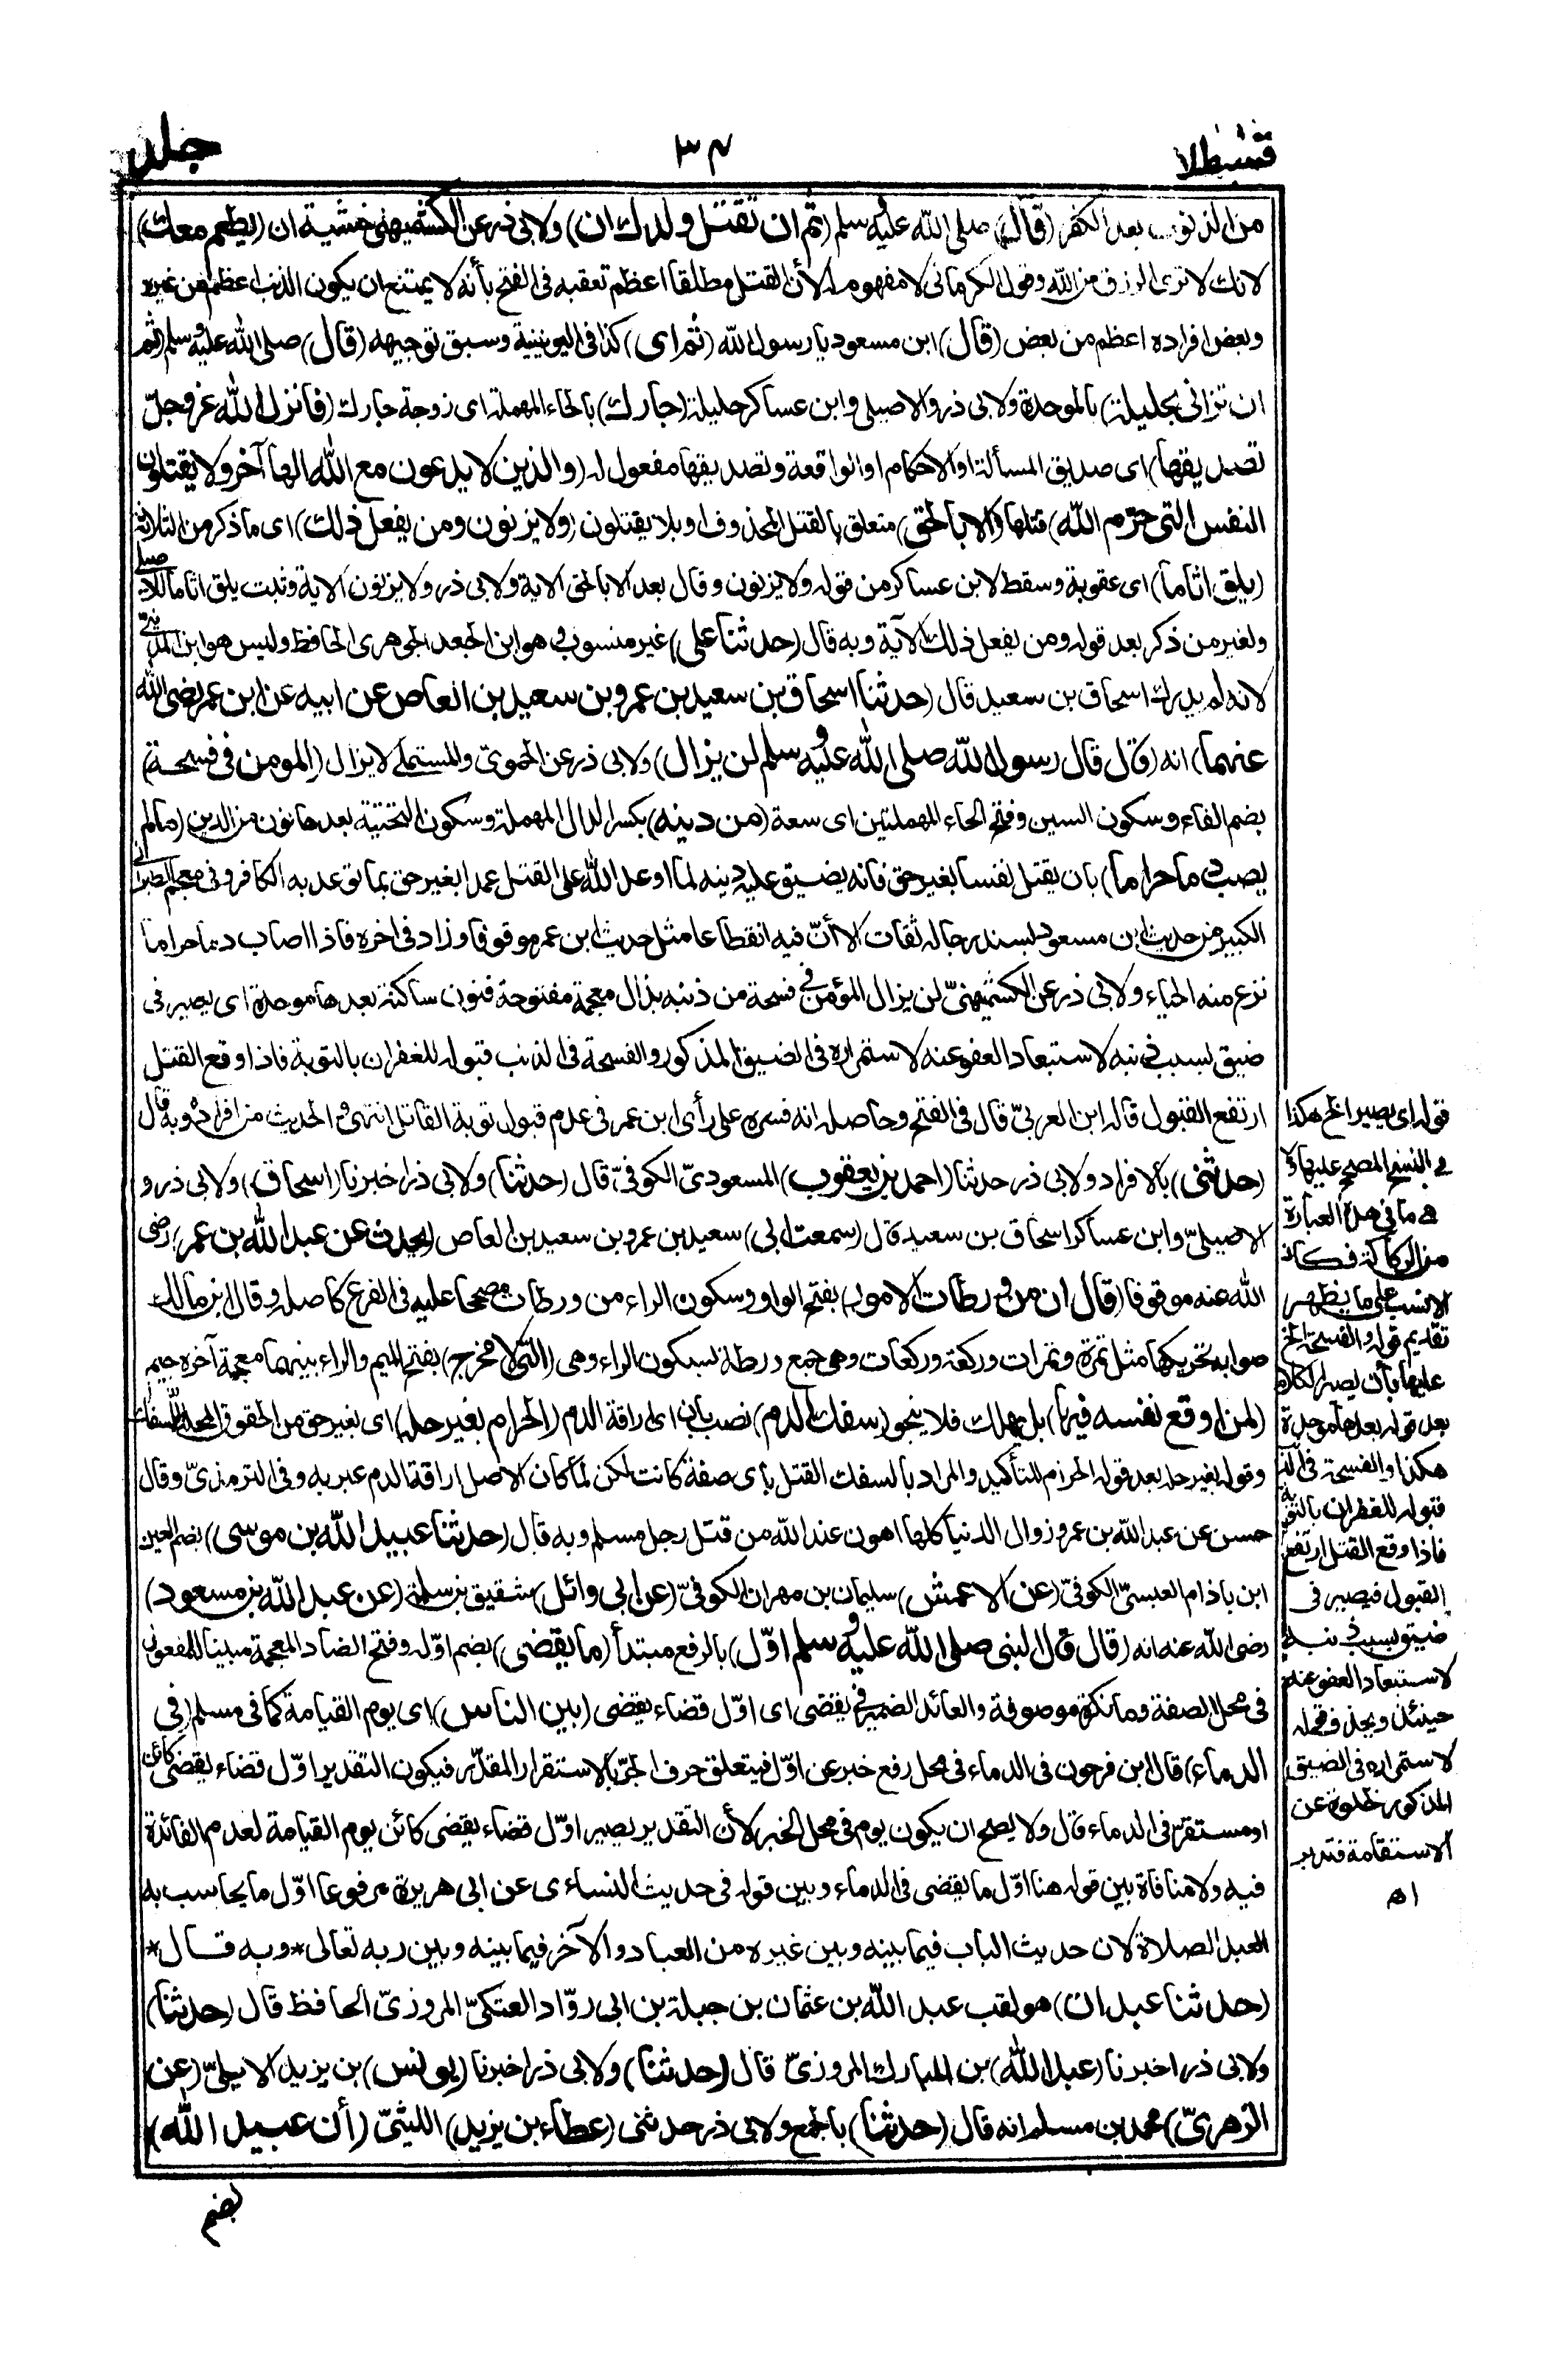 قسطلا
٣٤
جلد
من الذنوب بعد الكفر (قال) صلى الله عليه وسلم (ثم ان تقتل ولدك ان) ولابي ذر عن الكشميهنى خشية ان (يطعم معك)
لانك لا ترى الرزق من الله وقول الكرمانى لا مفهوم له لأن القتل مطلقا اعظم تعقبه فى الفتح بأنه لا يمتنع ان يكون الذنب اعظم من غيره
وبعض افراده اعظم من بعض (قال) ابن مسعود يا رسول الله (ثم اى) كذا فى اليونينية وسبق توجيهه (قال) صلى الله عليه وسلم (ثم
ان تزانى بحليلة) بالموحدة ولابى ذر والاصيلى وابن عساكر حليلة (جارك) بالحاء المهملة اى زوجة جارك (فانزل الله عز وجل
تصديقها) اى صديق المسألة او الاحكام او الواقعة وتصديقها مفعول له (والذين لا يدعون مع الله الها آخر ولا يقتلون
النفس التى حرّم الله) قتلها (الا بالحق) متعلق بالقتل المحذوف او بلا يقتلون (ولا يزنون ومن يفعل ذلك) اى ما ذكر من الثلاثة
(يلق اثاما) اى عقوبة وسقط لابن عساكر من قوله ولا يزنون وقال بعد الا بالحق الاية ولابى ذر ولا يزنون الاية وثبت يلق اثاما للاصيلى
ولغير من ذكر بعد قوله ومن يفعل ذلك الآية وبه قال (حدثنا على) غير منسوب هو ابن الجعد الجوهرى الحافظ وليس هو ابن المدينىّ
لانه لم يدرك اسحاق بن سعيد قال (حدثنا اسحاق بن سعيد بن عمرو بن سعيد بن العاص عن ابيه عن ابن عمر رضى الله
عنهما) انه (قال قال رسول الله صلى الله عليه وسلم لن يزال) ولابى ذر عن الحموى والمستملى لا يزال (المومن فى فسحة)
بضم الفاء وسكون السين وفتح الحاء المهملتين اى سعة (من دينه) بكسر الدال المهملة وسكون التحتية بعدها نون من الدين (ما لم
يصب دما حراما) بان يقتل نفسا بغير حق فانه يضيق عليه دينه لما اوعد الله على القتل عمدا بغير حق بما توعد به الكافر وفى معجم الطبرانى
الكبير من حديث ابن مسعود بسند رجاله ثقات الا أنّ فيه انقطاعا مثل حديث ابن عمر موقوفا وزاد فى اخره فاذا اصاب دما حراما
نزع منه الحياء ولابى ذر عن الكشميهنىّ لن يزال المؤمن فى فسحة من ذنبه بذال معجمة مفتوحة فنون ساكنة بعدها موحدة اى يصير فى
ضيق بسبب ذنبه لاستبعاد العفو عنه لاستمراره فى الضيق المذكور والفسحة فى الذنب قبوله للغفران بالتوبة فاذا وقع القتل
ارتفع القبول قاله ابن العربىّ قال فى الفتح وحاصله انه فسره على رأى ابن عمر فى عدم قبول توبة القاتل انتهى والحديث من افراده وبه قال
(حدثنى) بالافراد ولابى ذر حدثنا (احمد بن يعقوب) المسعودىّ الكوفىّ قال (حدثنا) ولابى ذر اخبرنا (اسحاق) ولابى ذر و
الاصيلىّ وابن عساكر اسحاق بن سعيد قال (سمعت ابى) سعيد بن عمرو بن سعيد بن العاص (يحدث عن عبد الله بن عمر) رضى
الله عنه موقوفا (قال ان من ورطات الامور) بفتح الواو وسكون الراء من ورطات مصححا عليه فى الفرع كاصله وقال ابن مالك
صوابه تحريكها مثل تمرة وتمرات وركعة وركعات وهى جمع ورطة بسكون الراء وهى (التى لا مخرج) بفتح الميم والراء بينهما معجمة آخره جيم
(لمن اوقع نفسه فيها) بل يهلك فلا ينجو (سفك الدم) نصب بان اى اراقة الدم (الحرام بغير حله) اى بغير حق من الحقوق المحلة للسفك
وقوله بغير حله بعد قوله الحرام للتأكيد والمراد بالسفك القتل بأى صفة كانت لكن لما كان الاصل اراقة الدم عبر به وفى الترمذىّ وقال
حسن عن عبد الله بن عمرو زوال الدنيا كلها اهون عند الله من قتل رجل مسلم وبه قال (حدثنا عبيد الله بن موسى) بضم العين
ابن باذام العبسىّ الكوفىّ (عن الاعمش) سليمان بن مهران الكوفىّ (عن ابى وائل) شقيق بن سلمة (عن عبد الله بن مسعود)
رضى الله عنه انه (قال قال النبى صلى الله عليه وسلم اوّل) بالرفع مبتدأ (ما يقضى) بضم اوّله وفتح الضاد المعجمة مبنيا للمفعول
فى محل الصفة وما نكرة موصوفة والعائد الضمير فى يقضى اى اوّل قضاء يقضى (بين الناس) اى يوم القيامة كما فى مسلم (فى
الدماء) قال ابن فرحون فى الدماء فى محل رفع خبر عن اوّل فيتعلق حرف الجرّ بالاستقرار المقدّر فيكون التقدير اوّل قضاء يقضى كائن
او مستقرّ فى الدماء قال ولا يصح ان يكون يوم فى محل الخبر لأن التقدير يصير اوّل قضاء يقضى كائن يوم القيامة لعدم الفائدة
فيه ولا منافاة بين قوله هنا اوّل ما يقضى فى الدماء وبين قوله فى حديث النساءى عن ابى هريرة مرفوعا اوّل ما يحاسب به
العبد الصلاة لان حديث الباب فيما بينه وبين غيره من العباد والآخر فيما بينه وبين ربه تعالى * وبه قال *
(حدثنا عبدان) هو لقب عبد الله بن عثمان بن جبلة بن ابى روّاد العتكىّ المروزىّ الحافظ قال (حدثنا)
ولابى ذر اخبرنا (عبد الله) بن المبارك المروزىّ قال (حدثنا) ولابى ذر اخبرنا (يونس) بن يزيد الايلىّ (عن
الزهرىّ) محمد بن مسلم انه قال (حدثنا) بالجمع ولابى ذر حدثنى (عطاء بن يزيد) الليثىّ (أن عبيد الله)
بضم
قوله اى يصير الخ هكذا
فى النسخ المصحح عليها ولا
ما فى هذه العبارة
من الركاكة فكان
الانسب على ما يظهر
تقديم قوله والفسحة الخ
عليها بأن يصير الكلام
بعد قوله بعدها موحدة
هكذا والفسحة فى الذنب
قبوله للغفران بالتوبة
فاذا وقع القتل ارتفع
القبول فيصير فى
ضيق بسبب ذنبه
لاستبعاد العفو عنه
حينئذ ويحذف قوله
لاستمراره فى الضيق
المذكور لخلوه عن
الاستقامة فتدبر
اه